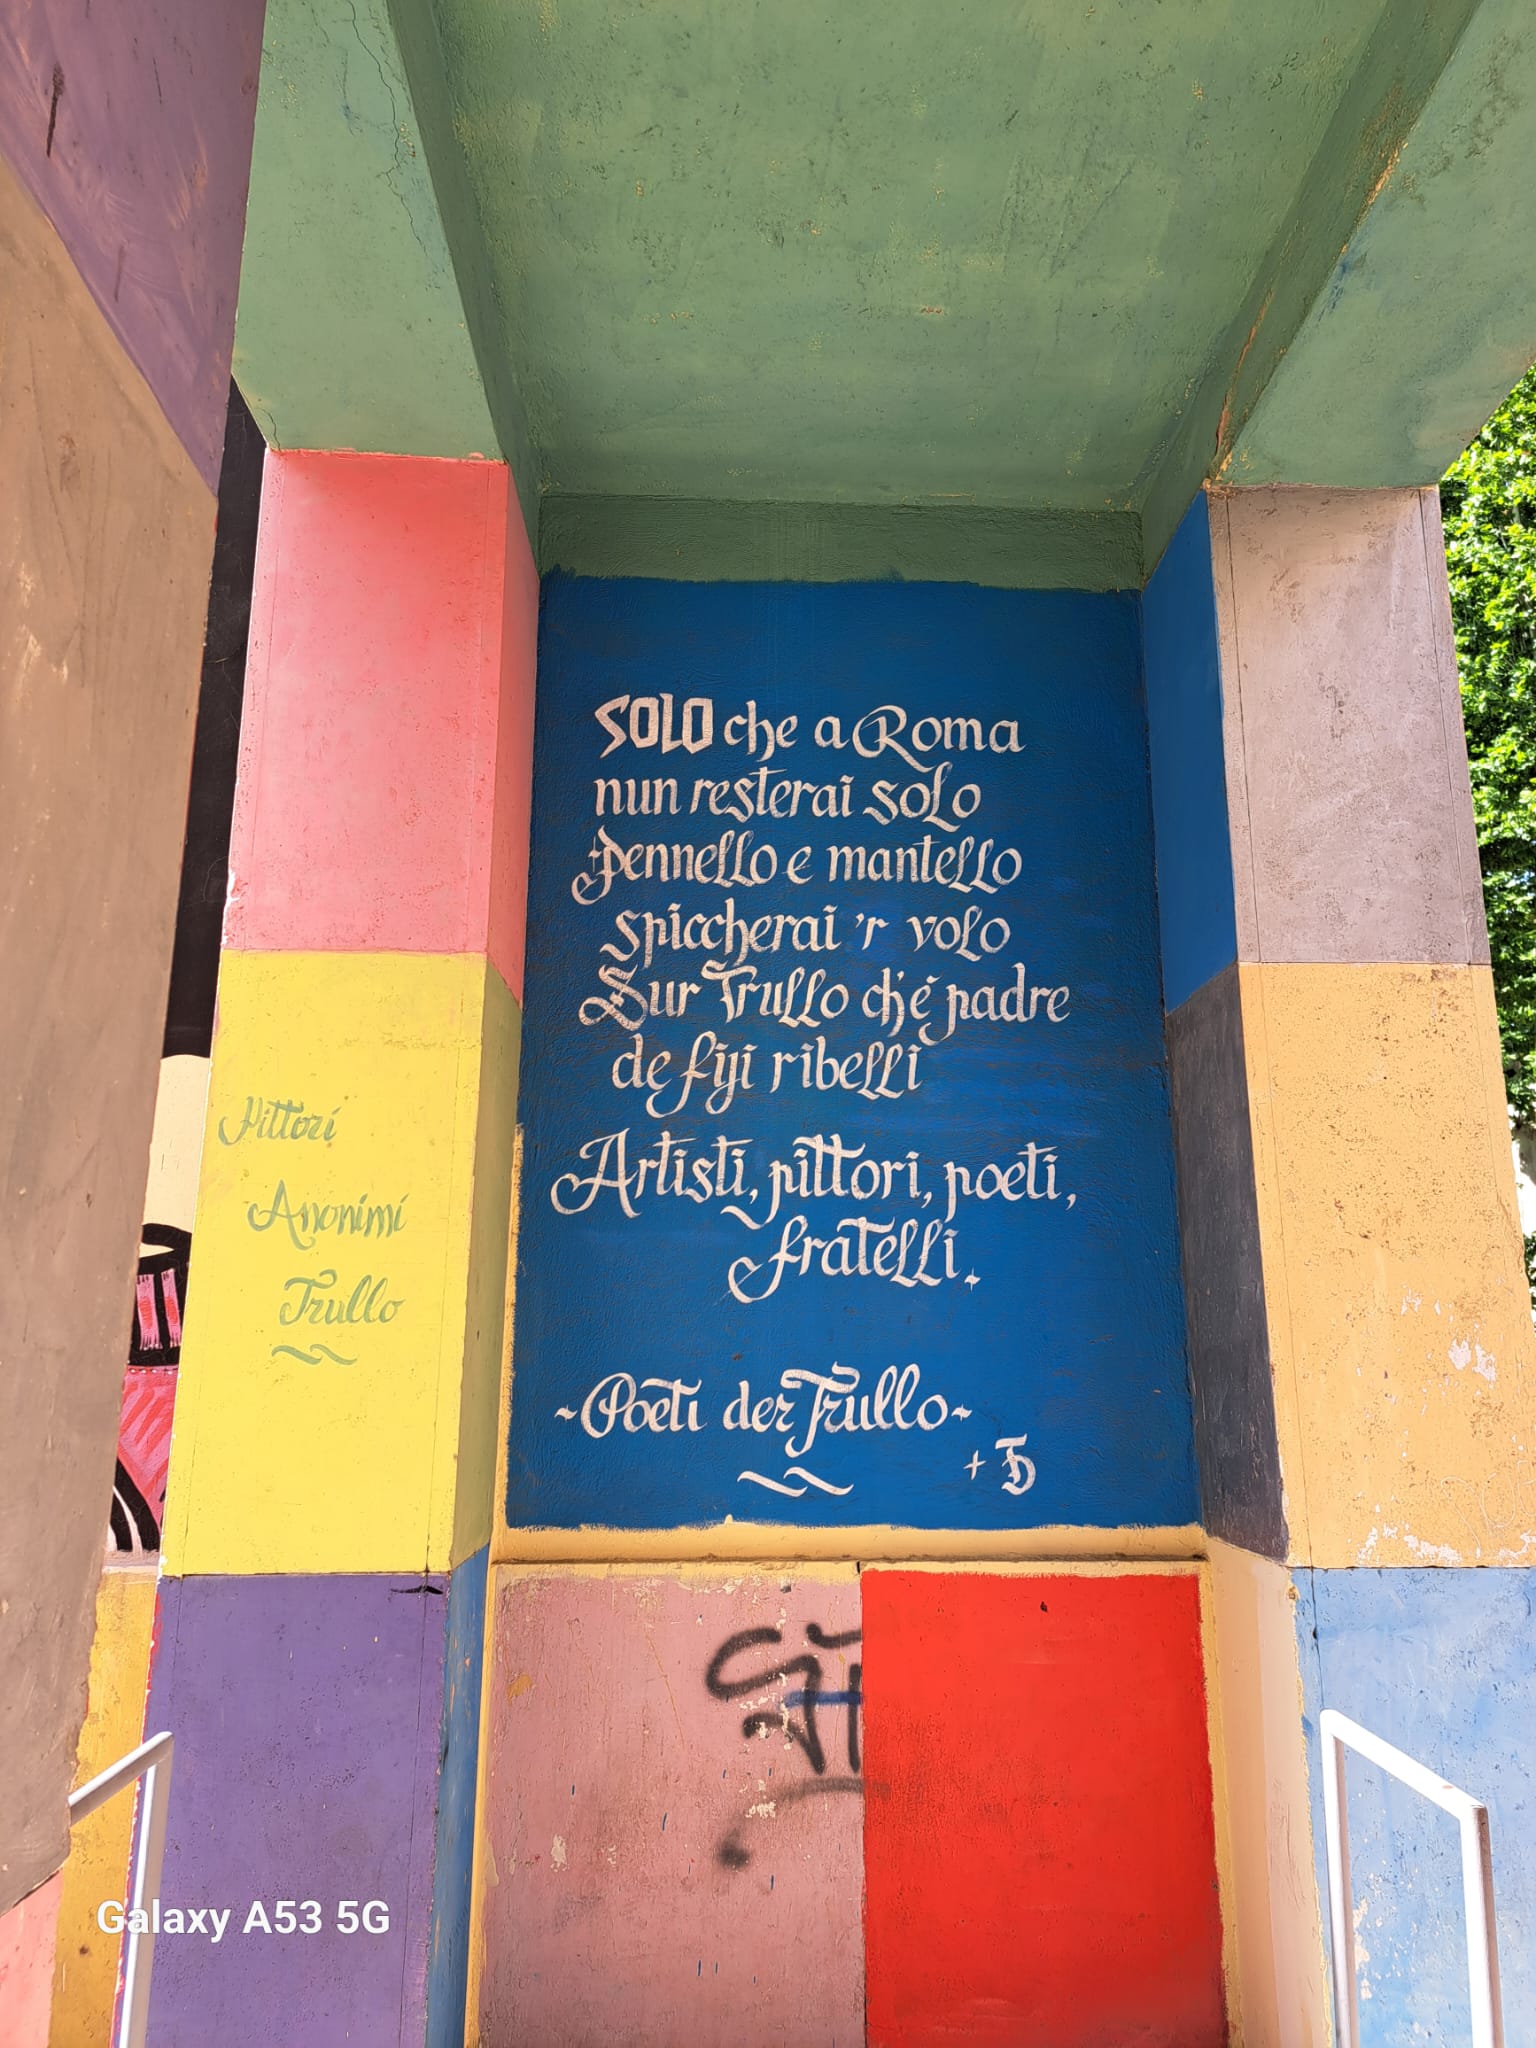 SOLO che a Roma
nun resterai solo
Pennello e mantello
spiccherai 'r volo
Sur Trullo ch'é padre
de fiji ribelli
Artisti, pittori, poeti,
fratelli.
~Poeti der Trullo~
Pittori
Anonimi
Trullo
Galaxy A53 5G